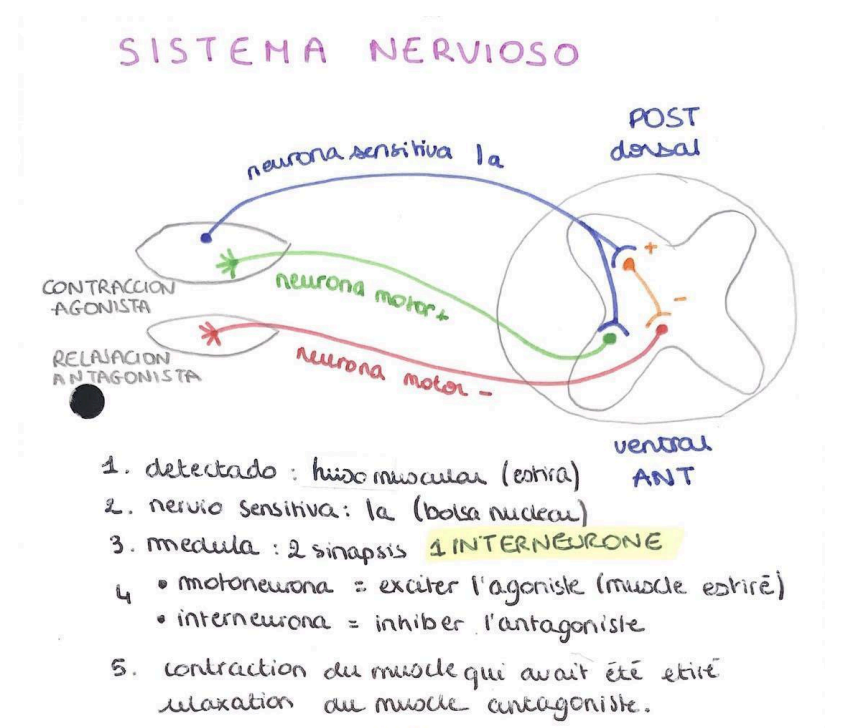 SISTEMA NERVIOSO
POST
dorsal
neurona sensitiva Ia
+
CONTRACCION
AGONISTA
neurona motor+
-
RELAJACION
ANTAGONISTA
neurona motor -
ventral
ANT
1. detectado : huso muscular (estira)
2. nervio sensitiva: Ia (bolsa nuclear)
3. medula : 2 sinapsis 1 INTERNEURONE
4 • motoneurona = exciter l'agoniste (muscle estiré)
• interneurona = inhiber l'antagoniste
5. contraction du muscle qui avait été etiré
relaxation du muscle antagoniste.